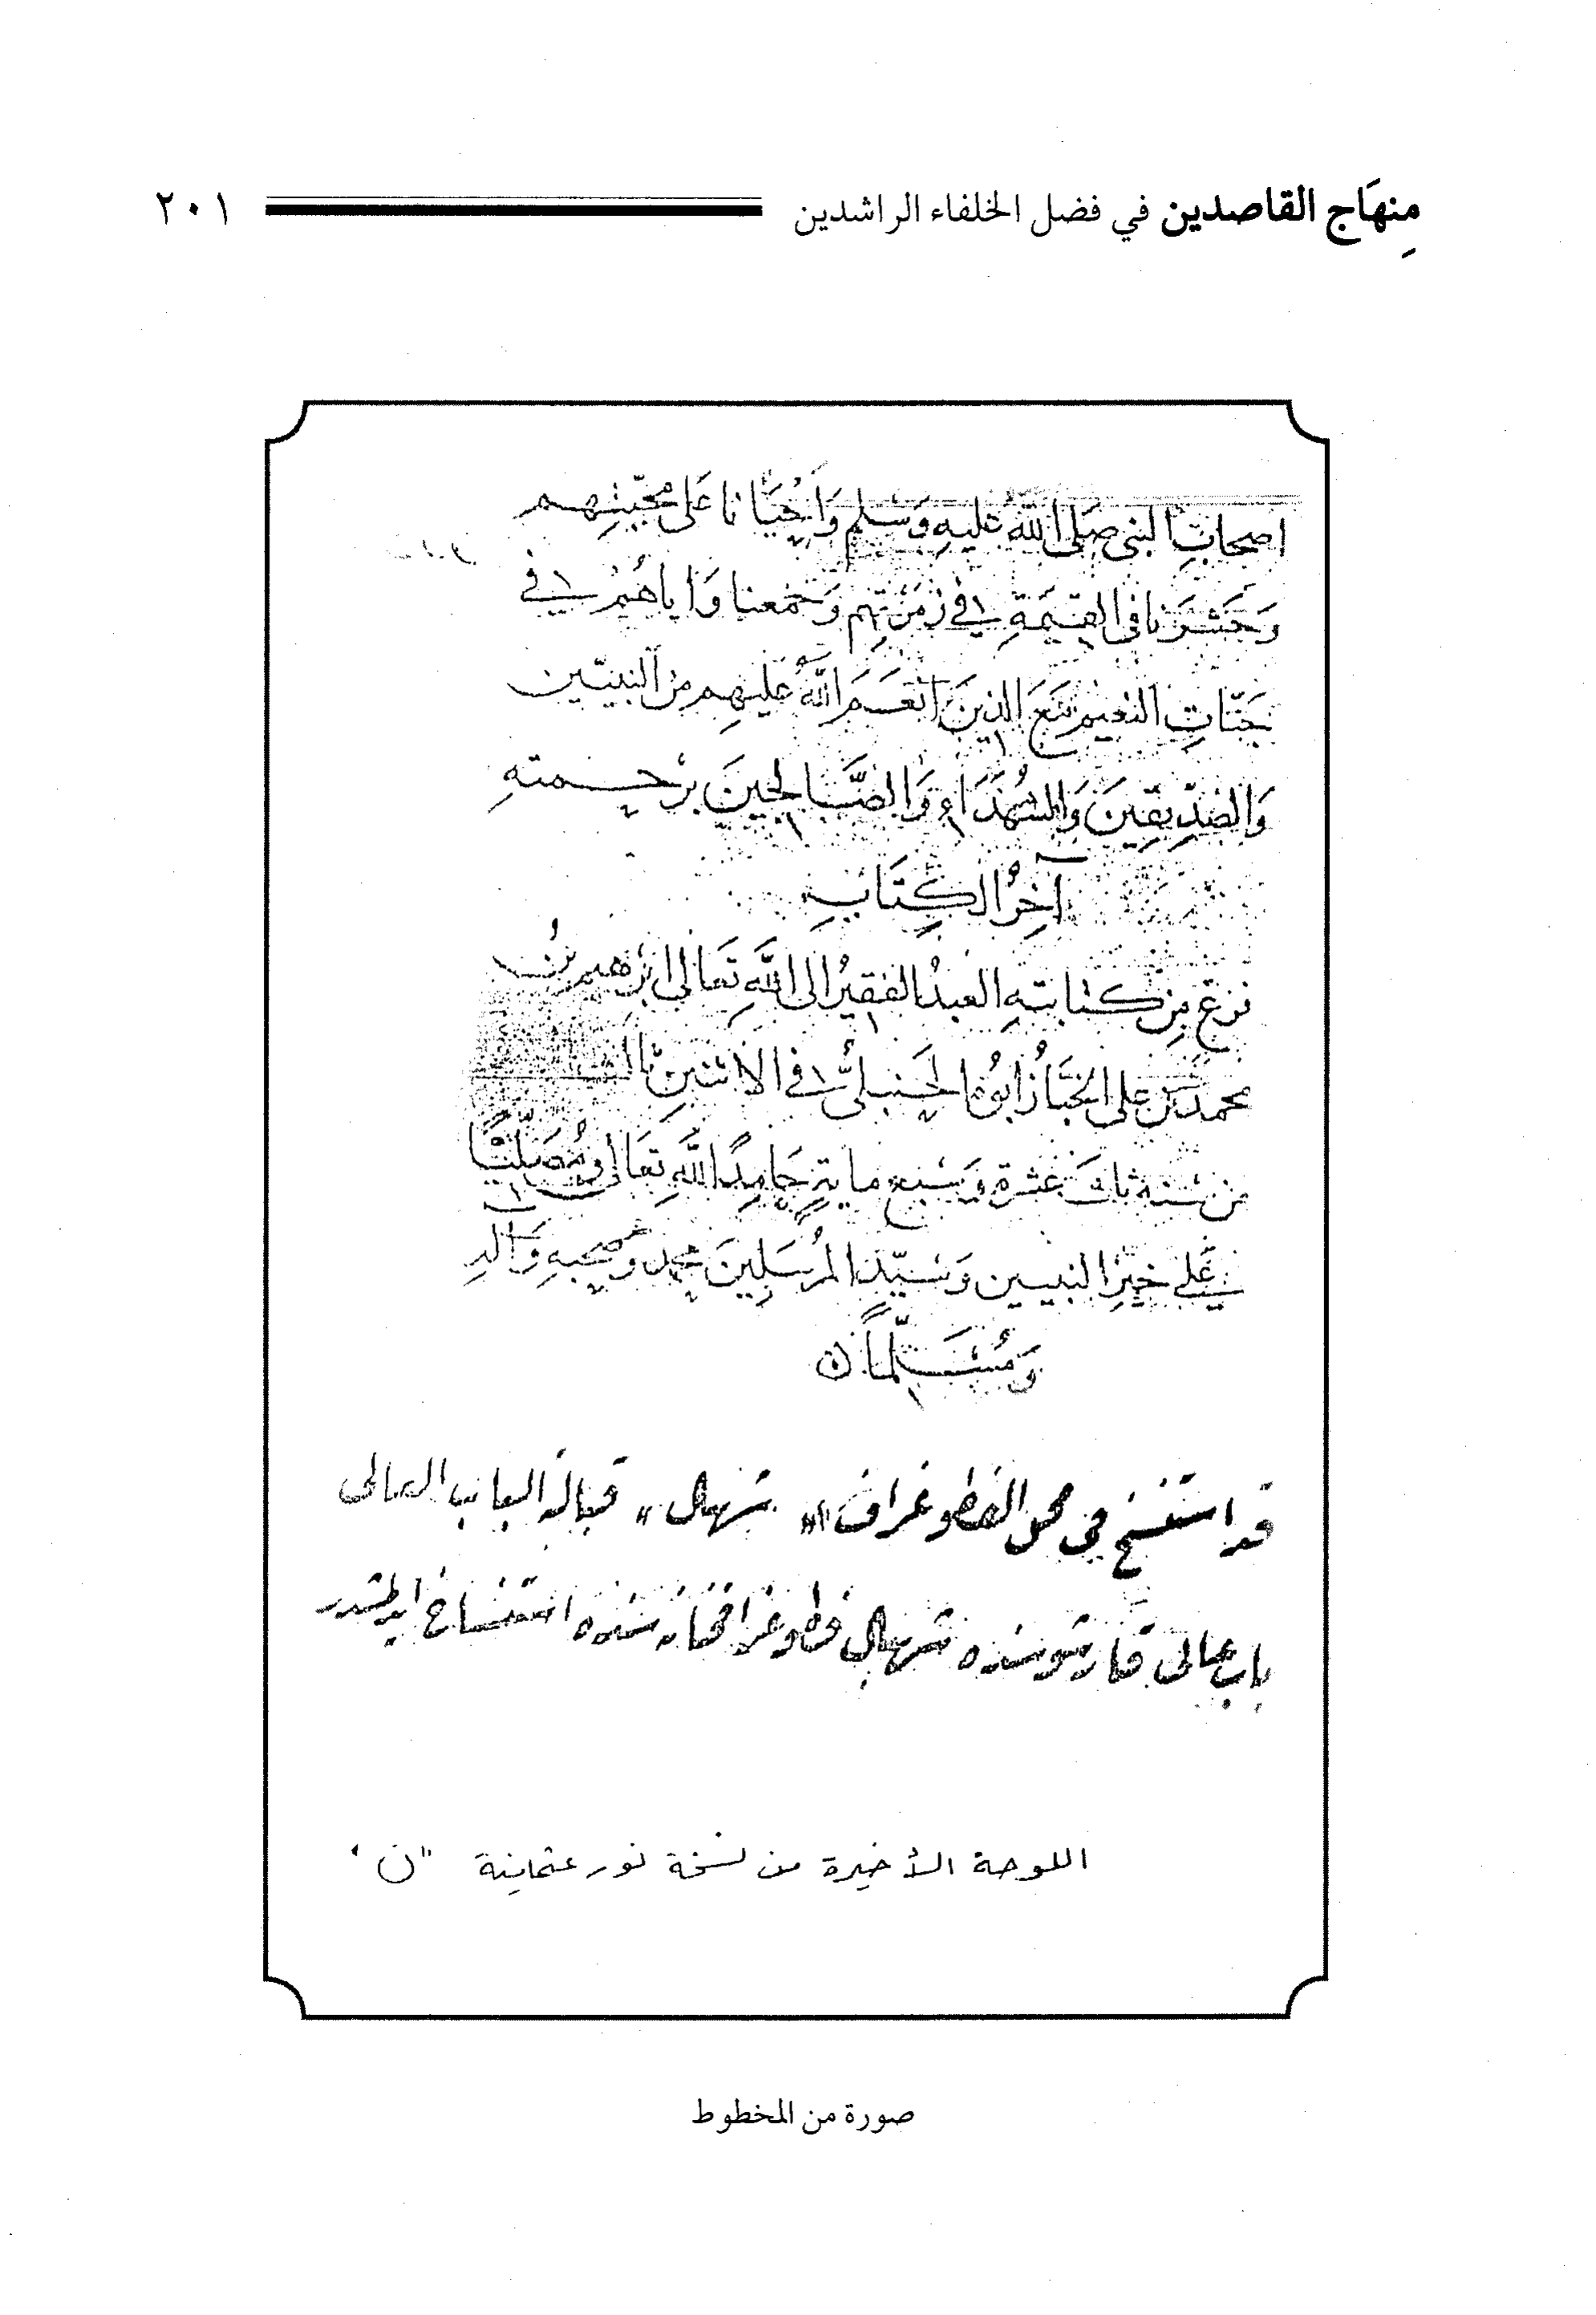 مِنهَاج القاصدين في فضل الخلفاء الراشدين ٢٠١
اصحابِ النبى صَلى اللهُ عليهِ وَسَلم وَأحْيَانا عَلى محَبّتِهم
وَحَشَرَنا فى القِيمَةِ في زُمرَتِهِم وَجَمعنا وَاياهُمْ في
جَنّاتِ النعيم مَعَ الذينَ انْعَمَ اللهُ عَليهِم من النبيّين
وَالصِّدّيقِينَ وَالشُهَدَاءِ وَالصَّالحينَ برَحمتهِ
آخِرُ الكِتَابِ
فرغ مِن كتابتهِ العبدُ الفقيرُ الى اللهِ تعَالى ابرهيم بنُ
محمد بن على الخبَّازُ ابوُها الحَنبليُّ في الاثنين
من سَنة ثَلاث عَشرة وَسَبع مايةٍ حَامِدًا للهِ تعَالى ومُصَلّيًا
عَلى خيرِ النبيين وَسَيّد المُرسَلِينَ محمد وَصَحبِهِ وَآلهِ
وَمُسَلّمًا
قد استنسخ في محل الفطوغراف «شهبال» قبالة الباب العالى
باب عالى قارشوسنده شهبال فطوغرافخانه سنده استنساخ ايدلمشدر
اللوحة الأخيرة من نسخة نور عثمانية "ن"
صورة من المخطوط